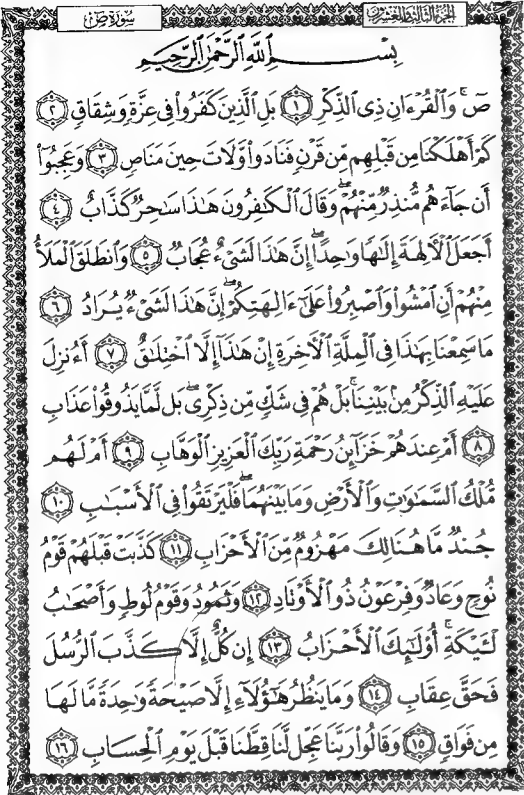 سُورَةُ صٓ
الجزء الثالث والعشرون
بِسْمِ اللَّهِ الرَّحْمَٰنِ الرَّحِيمِ
صٓ ۚ وَالْقُرْءَانِ ذِى الذِّكْرِ ١ بَلِ الَّذِينَ كَفَرُوا۟ فِى عِزَّةٍ وَشِقَاقٍ ٢
كَمْ أَهْلَكْنَا مِن قَبْلِهِم مِّن قَرْنٍ فَنَادَوا۟ وَّلَاتَ حِينَ مَنَاصٍ ٣ وَعَجِبُوٓا۟
أَن جَآءَهُم مُّنذِرٌ مِّنْهُمْ ۖ وَقَالَ الْكَٰفِرُونَ هَٰذَا سَٰحِرٌ كَذَّابٌ ٤
أَجَعَلَ الْءَالِهَةَ إِلَٰهًا وَٰحِدًا ۖ إِنَّ هَٰذَا لَشَىْءٌ عُجَابٌ ٥ وَانطَلَقَ الْمَلَأُ
مِنْهُمْ أَنِ امْشُوا۟ وَاصْبِرُوا۟ عَلَىٰٓ ءَالِهَتِكُمْ ۖ إِنَّ هَٰذَا لَشَىْءٌ يُرَادُ ٦
مَا سَمِعْنَا بِهَٰذَا فِى الْمِلَّةِ الْءَاخِرَةِ إِنْ هَٰذَآ إِلَّا اخْتِلَٰقٌ ٧ أَءُنزِلَ
عَلَيْهِ الذِّكْرُ مِنۢ بَيْنِنَا ۚ بَلْ هُمْ فِى شَكٍّ مِّن ذِكْرِى ۖ بَل لَّمَّا يَذُوقُوا۟ عَذَابِ
٨ أَمْ عِندَهُمْ خَزَآئِنُ رَحْمَةِ رَبِّكَ الْعَزِيزِ الْوَهَّابِ ٩ أَمْ لَهُم
مُّلْكُ السَّمَٰوَٰتِ وَالْأَرْضِ وَمَا بَيْنَهُمَا ۖ فَلْيَرْتَقُوا۟ فِى الْأَسْبَٰبِ ١٠
جُندٌ مَّا هُنَالِكَ مَهْزُومٌ مِّنَ الْأَحْزَابِ ١١ كَذَّبَتْ قَبْلَهُمْ قَوْمُ
نُوحٍ وَعَادٌ وَفِرْعَوْنُ ذُو الْأَوْتَادِ ١٢ وَثَمُودُ وَقَوْمُ لُوطٍ وَأَصْحَٰبُ
لْـَٔيْكَةِ ۚ أُو۟لَٰٓئِكَ الْأَحْزَابُ ١٣ إِن كُلٌّ إِلَّا كَذَّبَ الرُّسُلَ
فَحَقَّ عِقَابِ ١٤ وَمَا يَنظُرُ هَٰٓؤُلَآءِ إِلَّا صَيْحَةً وَٰحِدَةً مَّا لَهَا
مِن فَوَاقٍ ١٥ وَقَالُوا۟ رَبَّنَا عَجِّل لَّنَا قِطَّنَا قَبْلَ يَوْمِ الْحِسَابِ ١٦